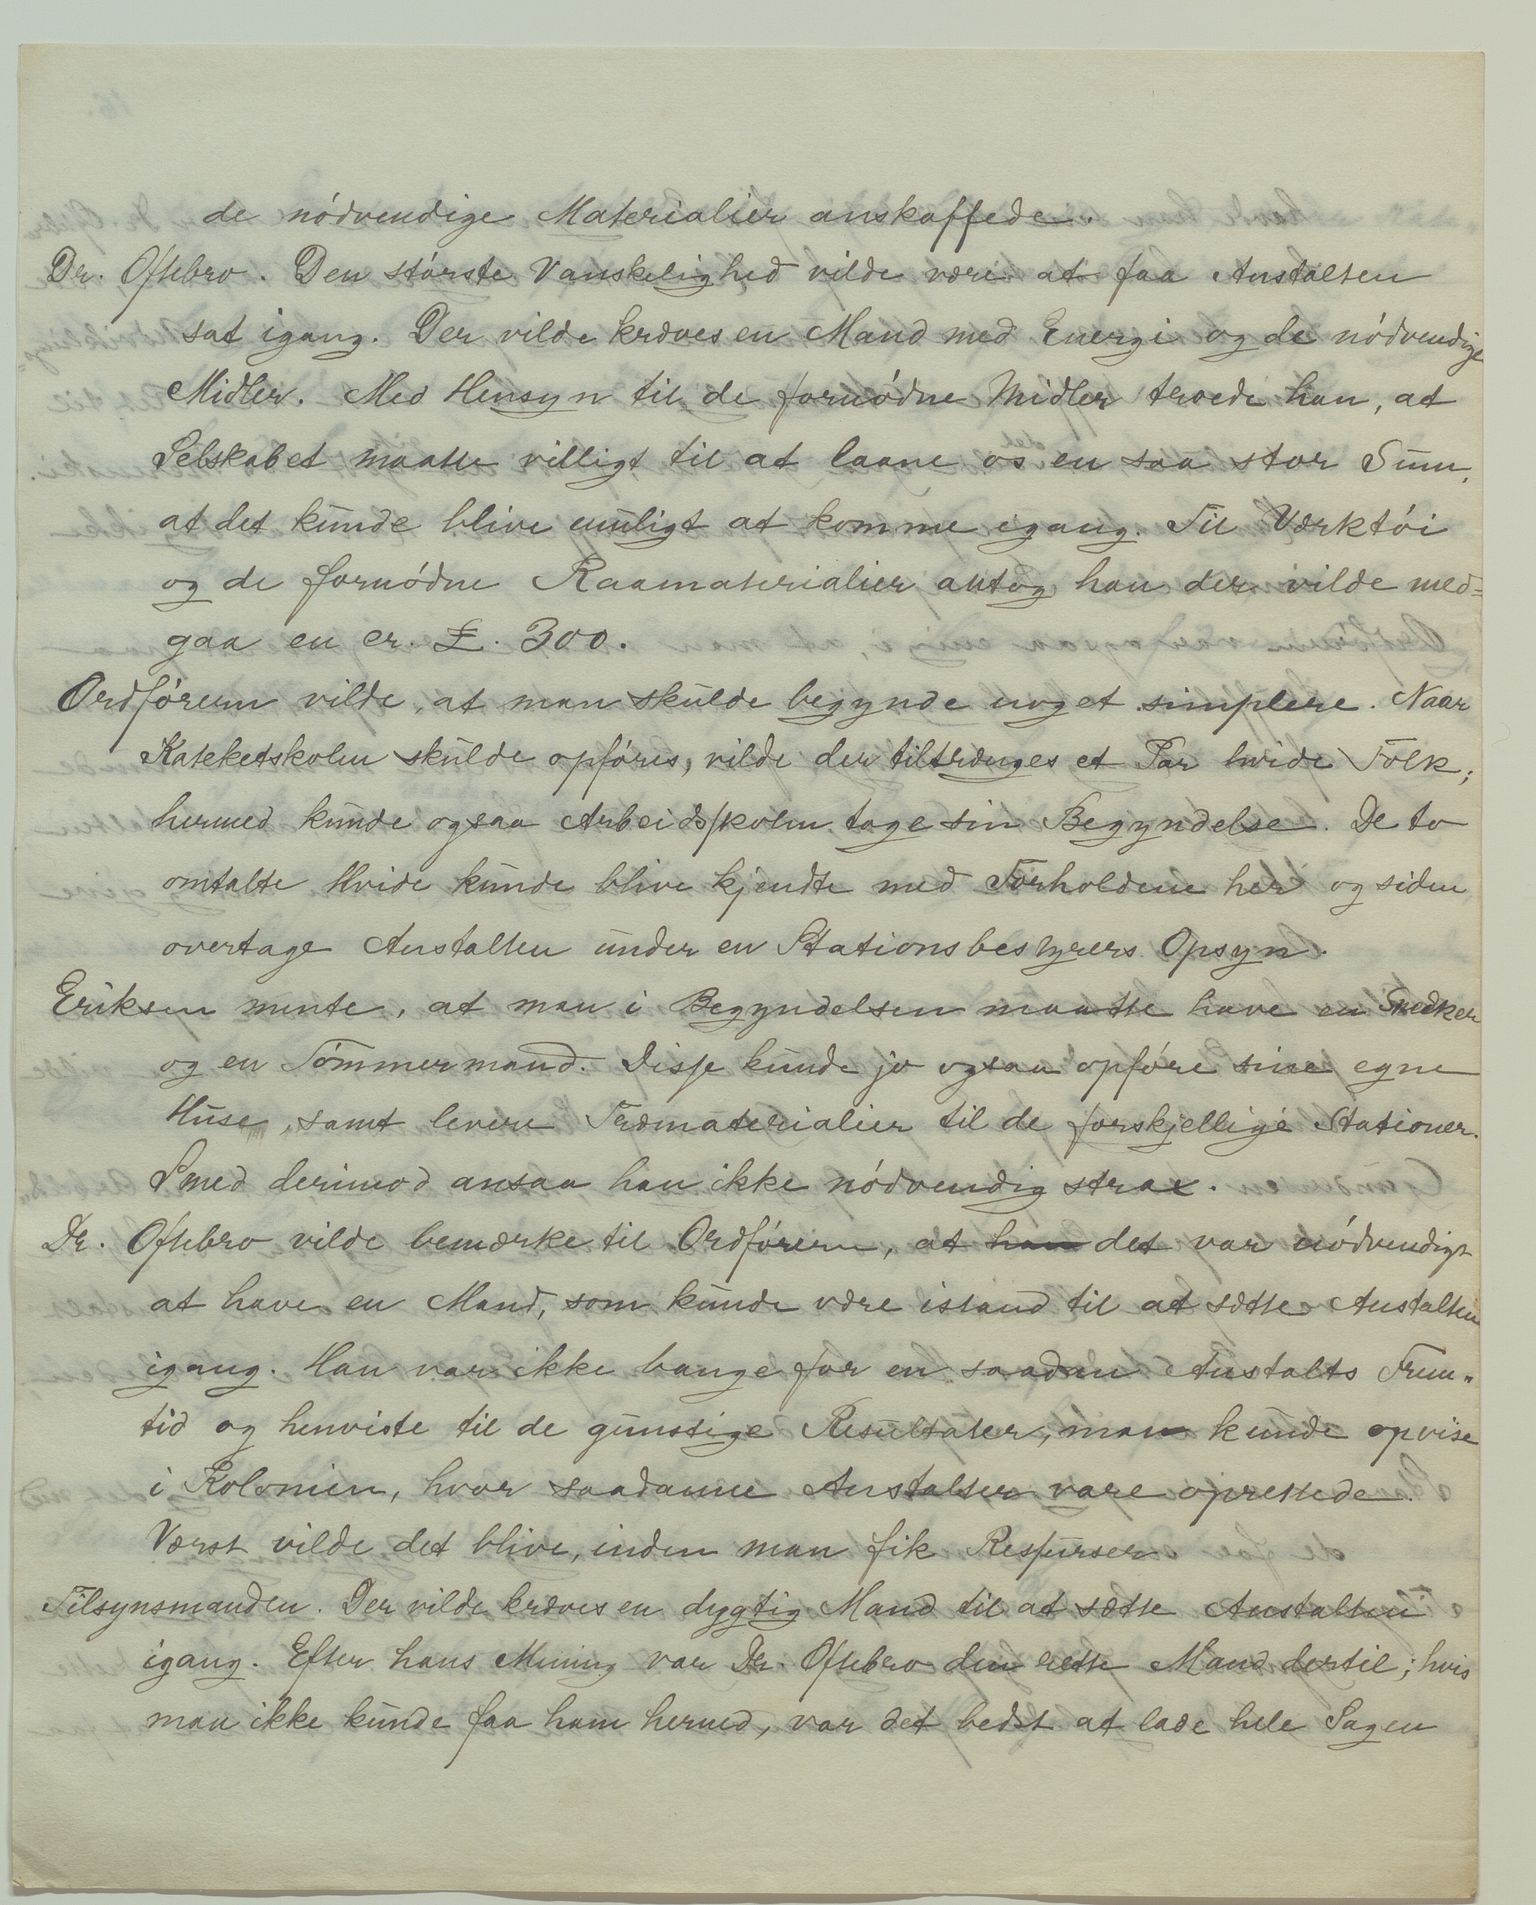 de nódvendige Materialier anskaffede.
Dr. Oftebro. Den stórste Vanskelighed vilde være at faa Anstalten
sat igang. Der vilde kræves en Mand med Energi og de nódvendige
Midler. Med Hensyn til de fornódne Midler troede han, at
Selskabet maatte villigt til at laane os en saa stor Sum,
at det kunde blive muligt at komme igang. Til Værktói
og de fornódne Raamaterialier antog han der vilde med=
gaa en cr. £. 300.
Ordfóreren vilde, at man skulde begynde noget simplere. Naar
Kateketskolen skulde opfóres, vilde der tiltrænges et Par hvide Folk;
hermed kunde ogsaa Arbeidsskolen tage sin Begyndelse. De to
omtalte Hvide kunde blive kjendte med Forholdene her og siden
overtage Anstalten under en Stationsbestyrers Opsyn.
Eriksen mente, at man i Begyndelsen maatte have en Snedker
og en Tómmermand. Disse kunde jo ogsaa opfóre sine egne
Huse, samt levere Træmaterialier til de forskjellige Stationer.
Smed derimod ansaa han ikke nódvendig strax.
Dr. Oftebro vilde bemærke til Ordfóreren, at han det var nódvendigt
at have en Mand, som kunde være istand til at sætte Anstalten
igang. Han var ikke bange for en saadan Anstalts Frem„
tid og henviste til de gunstige Resultater, man kunde opvise
i Kolonien, hvor saadanne Anstalter vare oprettede.
Værst vilde det blive, inden man fik Ressurser
Tilsynsmanden. Der vilde kræves en dygtig Mand til at sætte Anstalten
igang. Efter hans Mening var Dr. Oftebro den rette Mand dertil; hvis
man ikke kunde faa ham hermed, var det bedst at lade hele Sagen